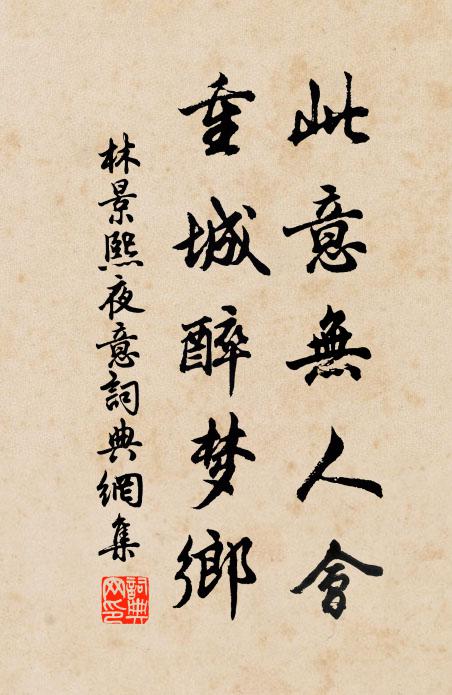 此意無人會
重城醉梦鄉
林景熙夜意詞典網集
詞典網印